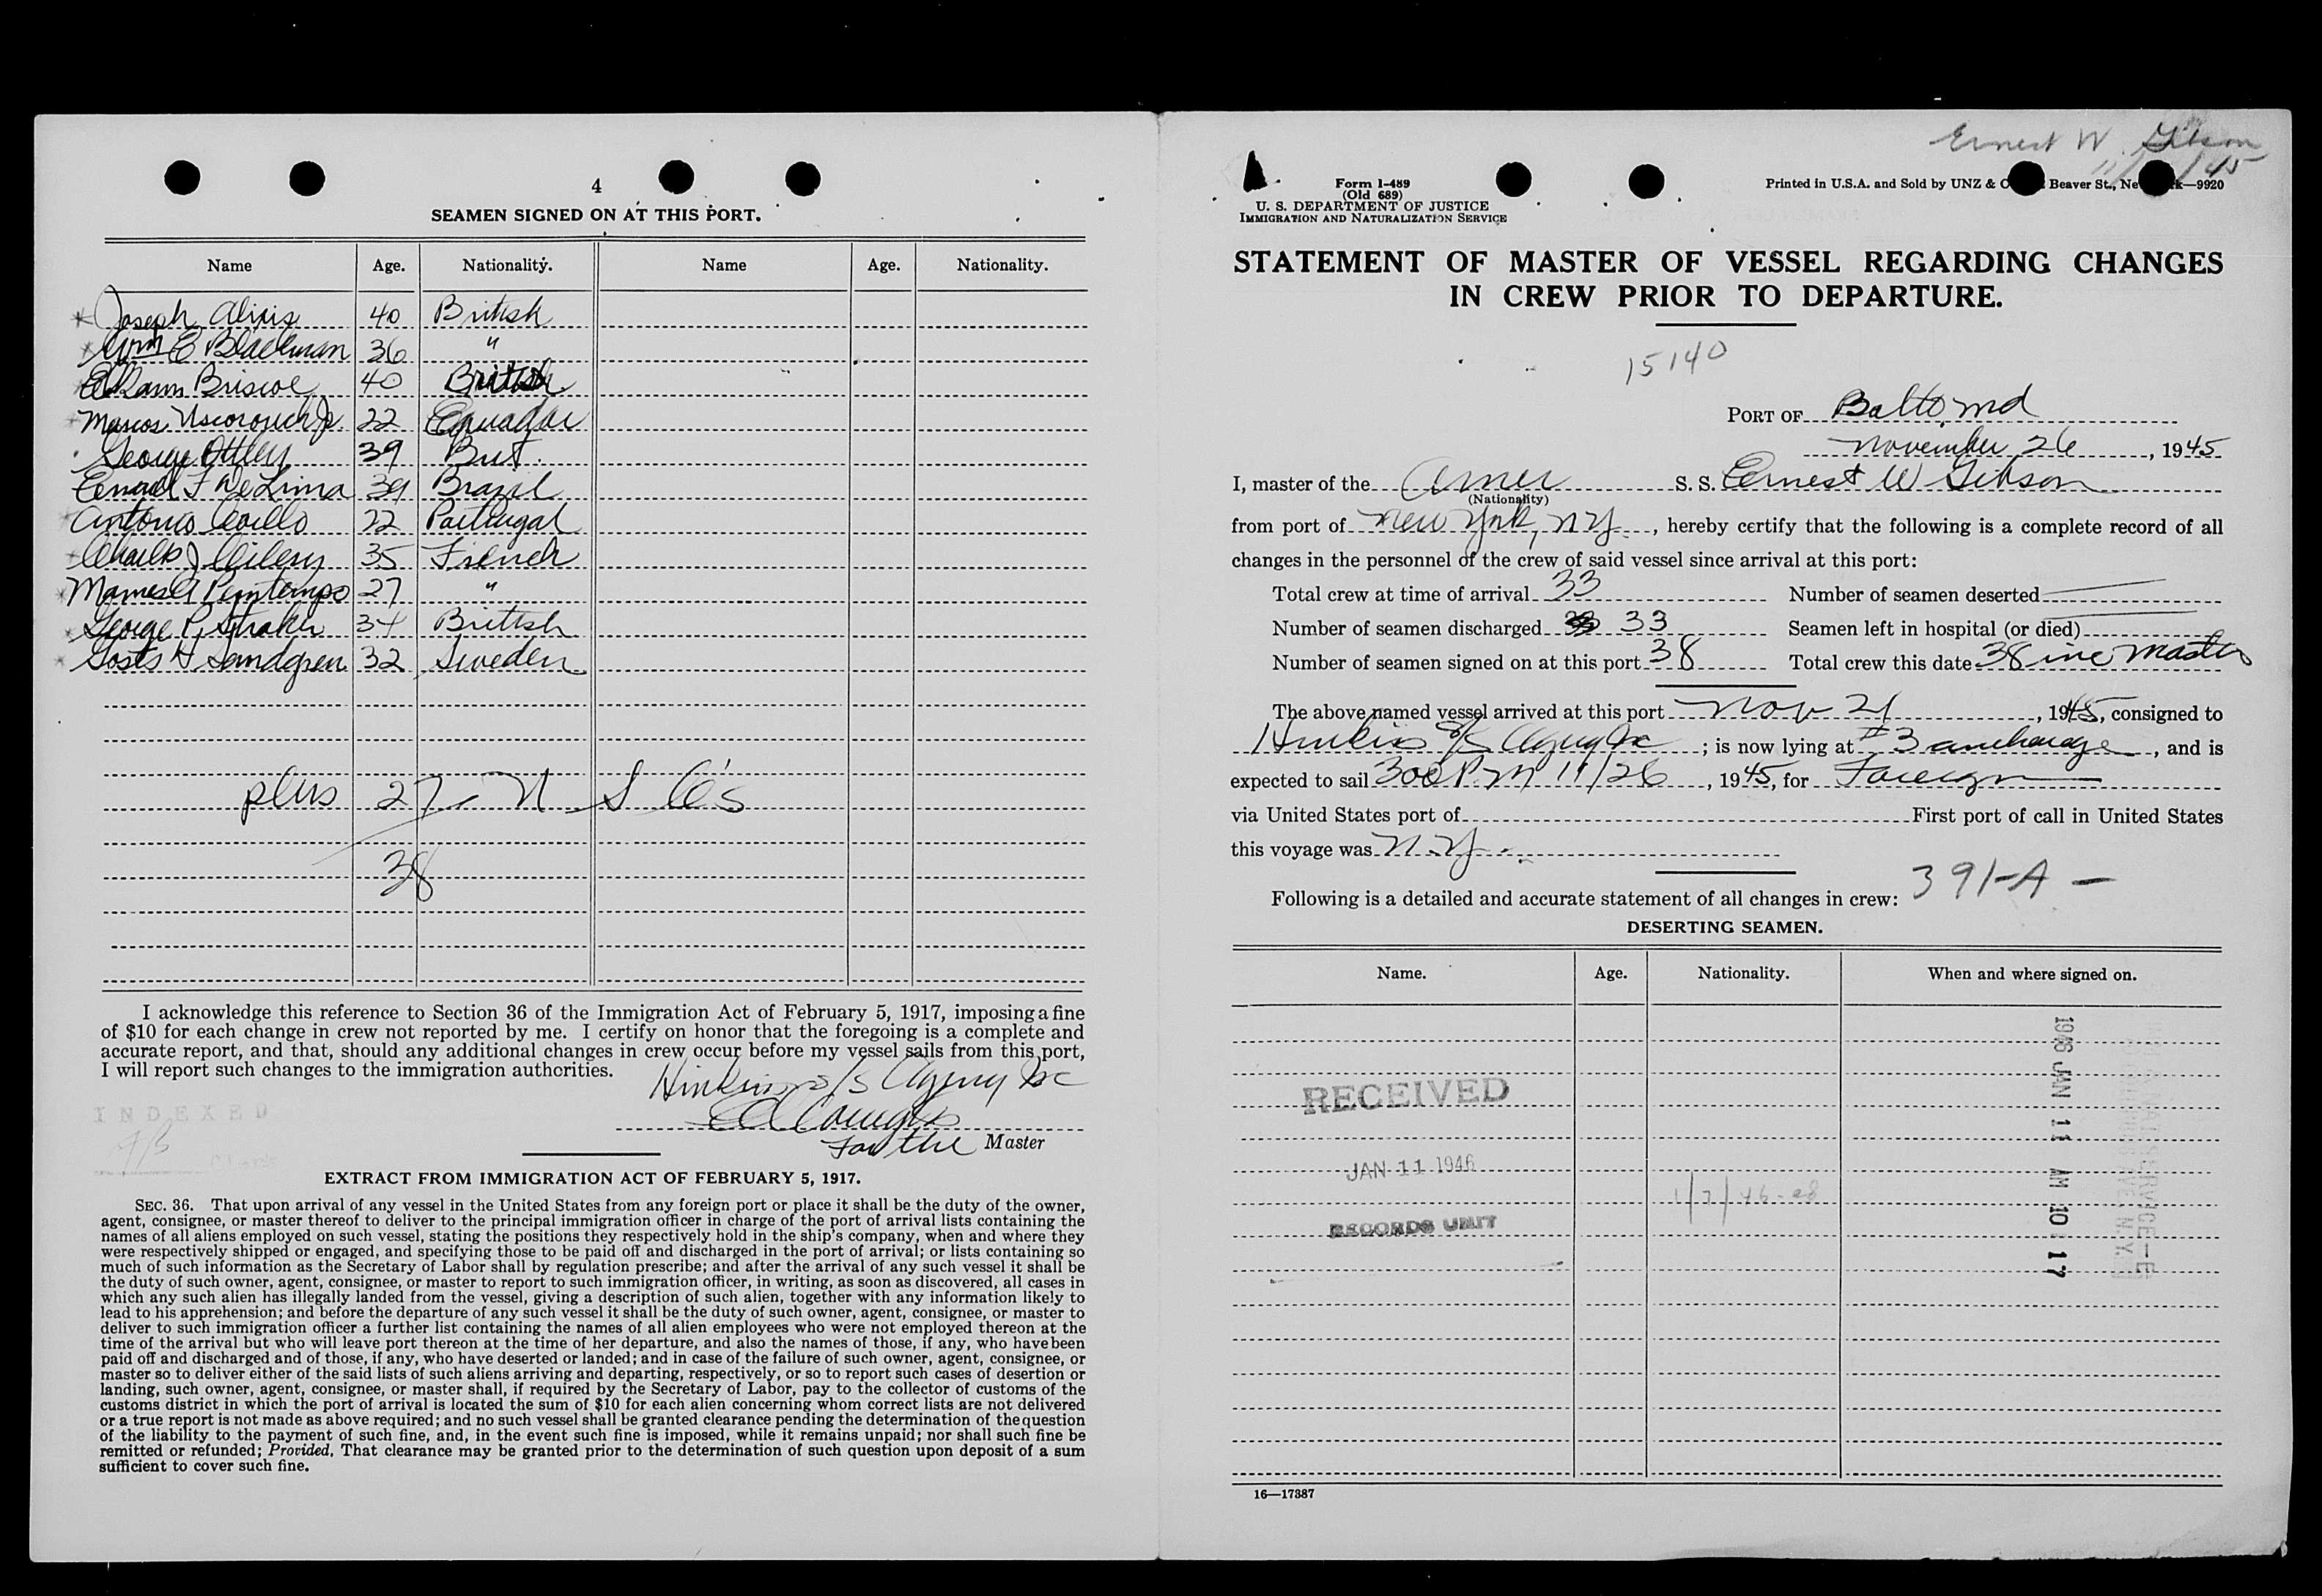 4
SEAMEN SIGNED ON AT THIS PORT.
Name Age. Nationality. Name Age. Nationality.
Joseph Alixis 40 British
Wm E Blackman 36 "
Briscoe 40 British
Marcos Jr. 22 Equador
George Ottley 39 Brit.
F De Lima 39 Brazil
Antonio 22 Portugal
Charles J 35 French
27 "
George P Straker 34 British
Gosta H Sandgren 32 Sweden
plus 27 U S C's
38
I acknowledge this reference to Section 36 of the Immigration Act of February 5, 1917, imposing a fine
of $10 for each change in crew not reported by me. I certify on honor that the foregoing is a complete and
accurate report, and that, should any additional changes in crew occur before my vessel sails from this port,
I will report such changes to the immigration authorities.
Hinkins S/S Agency Inc
INDEXED
For the Master
EXTRACT FROM IMMIGRATION ACT OF FEBRUARY 5, 1917.
SEC. 36. That upon arrival of any vessel in the United States from any foreign port or place it shall be the duty of the owner,
agent, consignee, or master thereof to deliver to the principal immigration officer in charge of the port of arrival lists containing the
names of all aliens employed on such vessel, stating the positions they respectively hold in the ship's company, when and where they
were respectively shipped or engaged, and specifying those to be paid off and discharged in the port of arrival; or lists containing so
much of such information as the Secretary of Labor shall by regulation prescribe; and after the arrival of any such vessel it shall be
the duty of such owner, agent, consignee, or master to report to such immigration officer, in writing, as soon as discovered, all cases in
which any such alien has illegally landed from the vessel, giving a description of such alien, together with any information likely to
lead to his apprehension; and before the departure of any such vessel it shall be the duty of such owner, agent, consignee, or master to
deliver to such immigration officer a further list containing the names of all alien employees who were not employed thereon at the
time of the arrival but who will leave port thereon at the time of her departure, and also the names of those, if any, who have been
paid off and discharged and of those, if any, who have deserted or landed; and in case of the failure of such owner, agent, consignee, or
master so to deliver either of the said lists of such aliens arriving and departing, respectively, or so to report such cases of desertion or
landing, such owner, agent, consignee, or master shall, if required by the Secretary of Labor, pay to the collector of customs of the
customs district in which the port of arrival is located the sum of $10 for each alien concerning whom correct lists are not delivered
or a true report is not made as above required; and no such vessel shall be granted clearance pending the determination of the question
of the liability to the payment of such fine, and, in the event such fine is imposed, while it remains unpaid; nor shall such fine be
remitted or refunded; Provided, That clearance may be granted prior to the determination of such question upon deposit of a sum
sufficient to cover such fine.
Ernest W. Gibson
Form I-489
(Old 689)
U. S. DEPARTMENT OF JUSTICE
IMMIGRATION AND NATURALIZATION SERVICE
Printed in U.S.A. and Sold by UNZ & Beaver St., —9920
STATEMENT OF MASTER OF VESSEL REGARDING CHANGES
IN CREW PRIOR TO DEPARTURE.
15140
PORT OF Balto md
November 26, 1945
I, master of the Amer S. S. Ernest W Gibson
(Nationality)
from port of New York, NY., hereby certify that the following is a complete record of all
changes in the personnel of the crew of said vessel since arrival at this port:
Total crew at time of arrival 33 Number of seamen deserted
Number of seamen discharged 33 Seamen left in hospital (or died)
Number of seamen signed on at this port 38 Total crew this date 38 inc Master
The above named vessel arrived at this port Nov 21, 1945, consigned to
Hinkins S/S Agency Inc; is now lying at #3 anchorage, and is
expected to sail 300 P.M 11/26, 1945, for Foreign
via United States port of First port of call in United States
this voyage was N.Y.
Following is a detailed and accurate statement of all changes in crew: 391-A -
DESERTING SEAMEN.
Name. Age. Nationality. When and where signed on.
RECEIVED
JAN 11 1946
RECORDS UNIT
1/7/46
1946 JAN 11 AM 10 17
16—17387